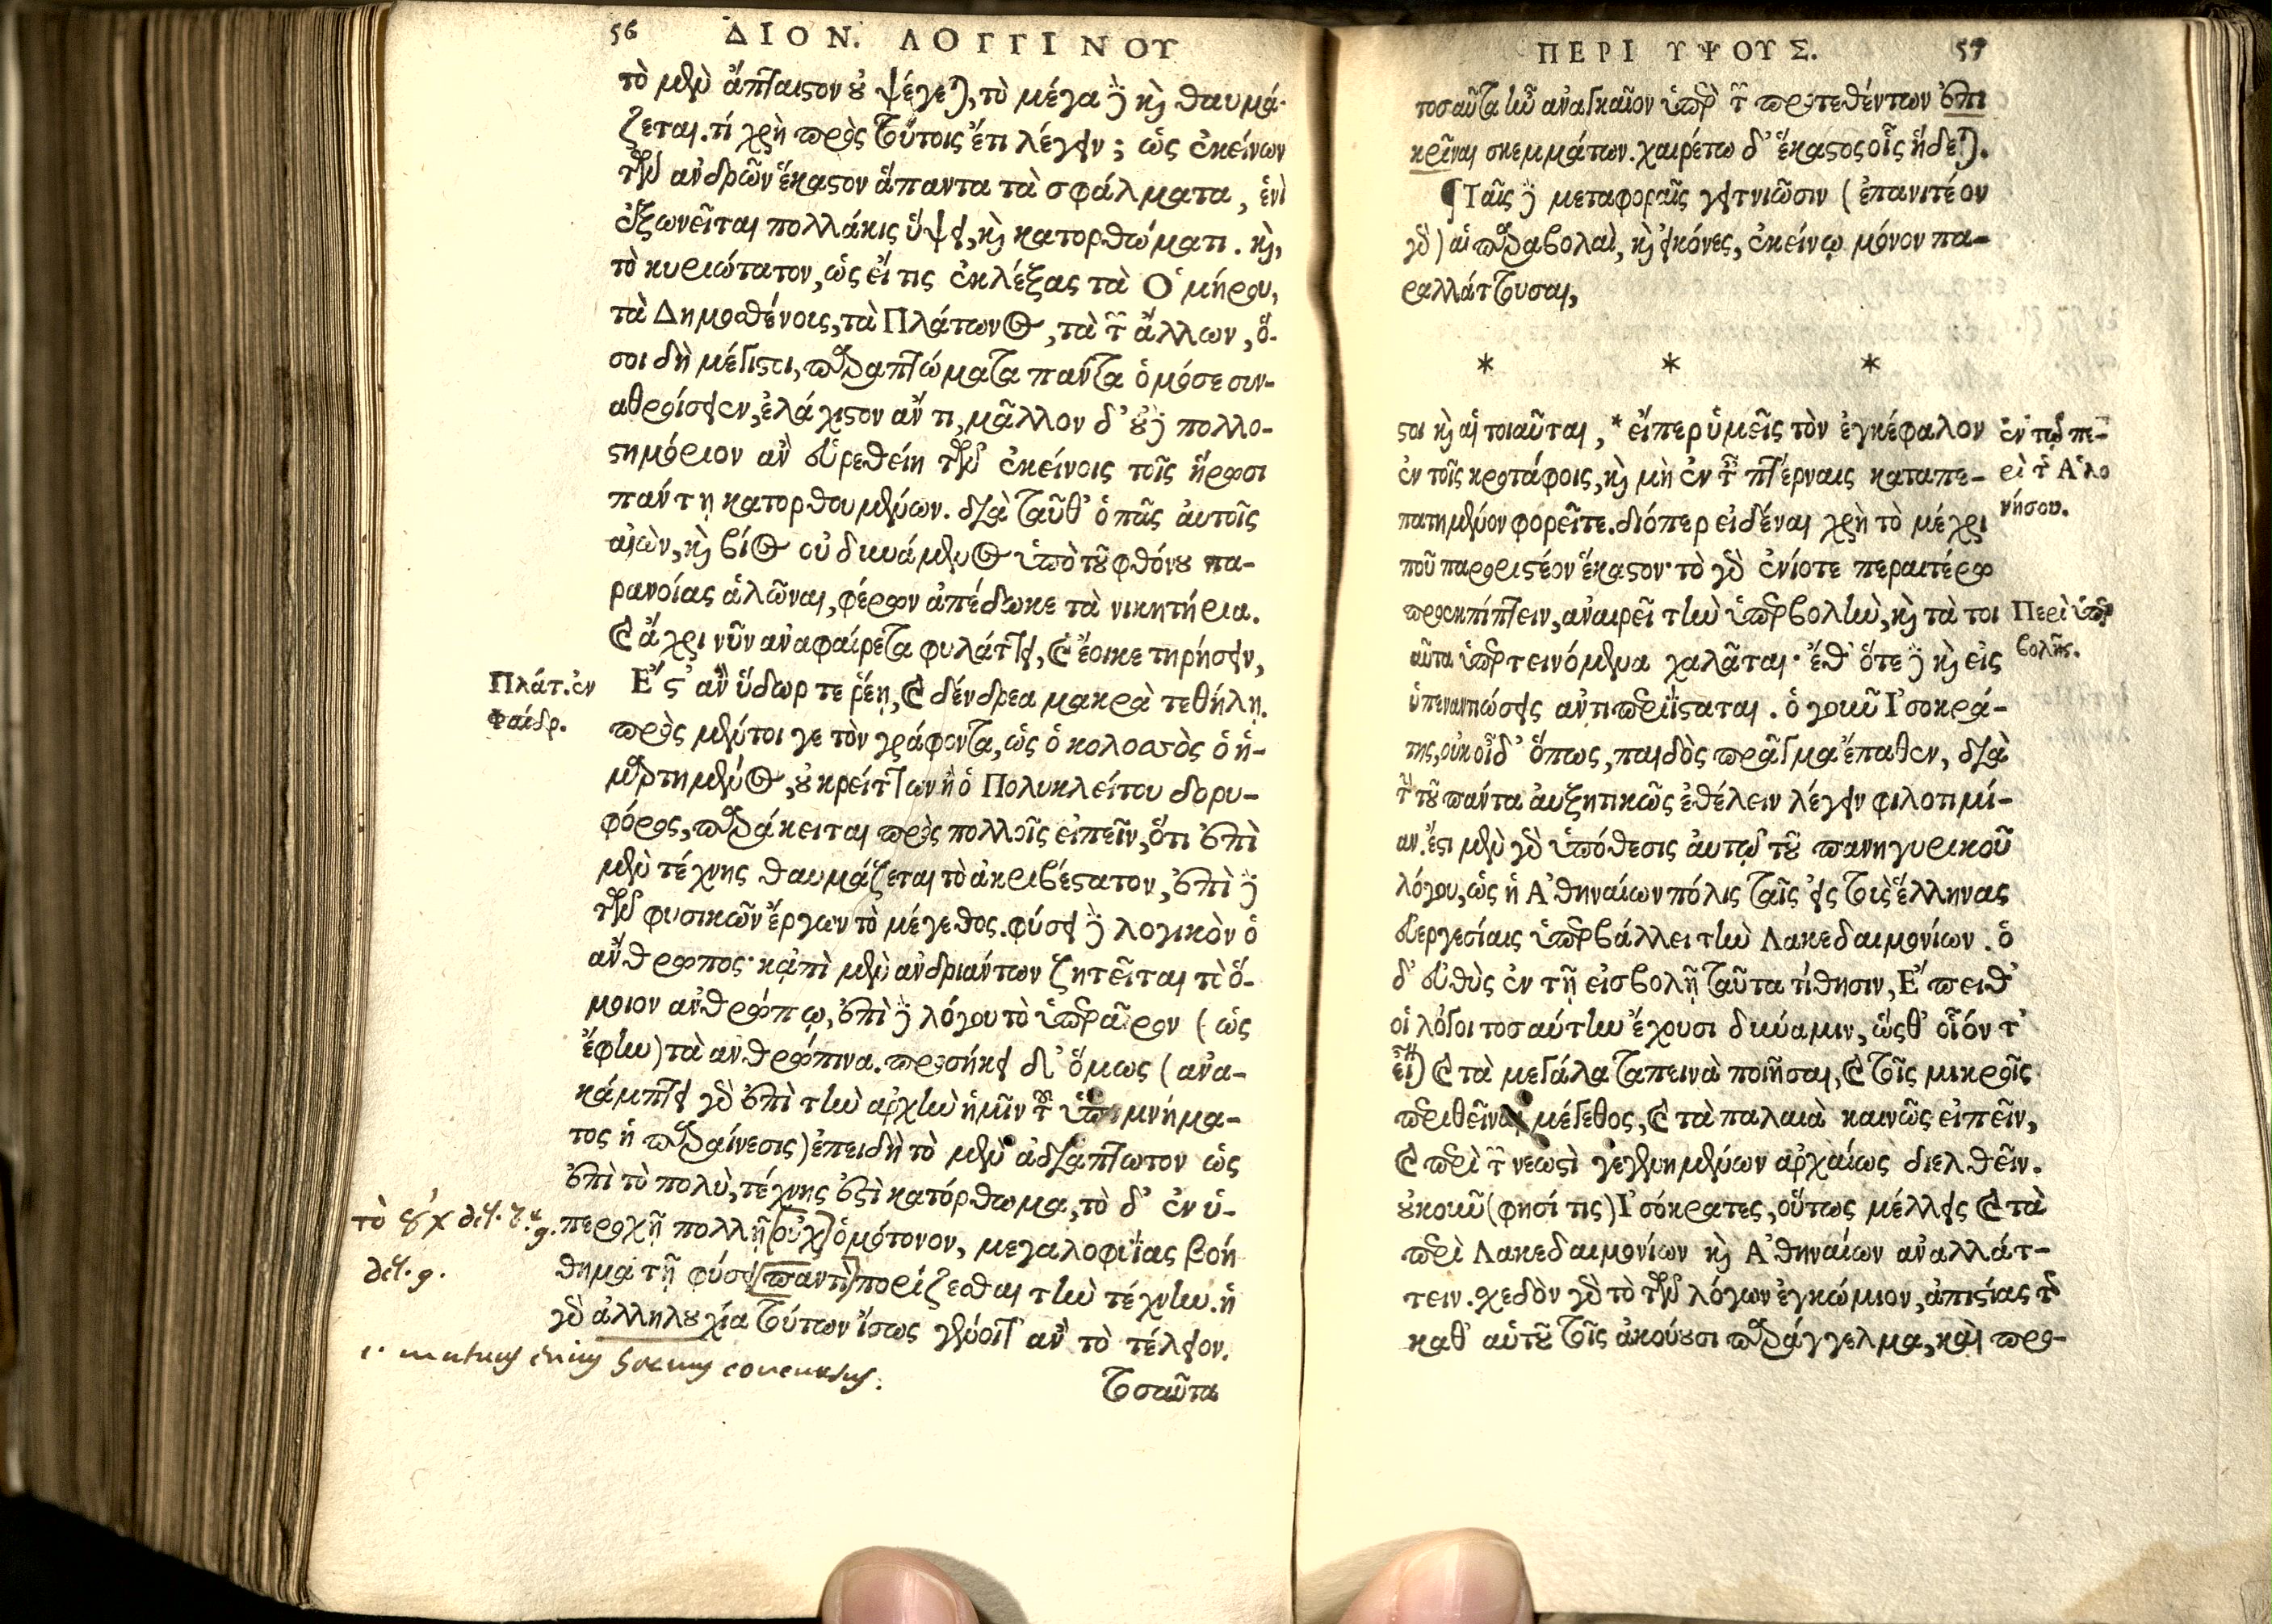 56 ΔΙΟΝ. ΛΟΓΓΙΝΟΥ
τὸ μὲν ἄπταιστον οὐ ψέγεται, τὸ μέγα δὲ καὶ θαυμά-
ζεται. τί χρὴ πρὸς τούτοις ἔτι λέγειν; ὡς ἐκείνων
τῶν ἀνδρῶν ἕκαστον ἅπαντα τὰ σφάλματα, ἑνὶ
ἐξωνεῖται πολλάκις ὕψει, καὶ κατορθώματι. καὶ,
τὸ κυριώτατον, ὡς εἴ τις ἐκλέξας τὰ Ὁμήρου,
τὰ Δημοσθένοις, τὰ Πλάτωνος, τὰ τῶν ἄλλων, ὅ-
σοι δὴ μέγιστοι, παραπτώματα πάντα ὁμόσε συν-
αθροίσειεν, ἐλάχιστον ἄν τι, μᾶλλον δ' οὐδὲ πολλο-
στημόριον ἂν εὑρεθείη τῶν ἐκείνοις τοῖς ἥρωσι
πάντῃ κατορθουμένων. διὰ ταῦθ' ὁ πᾶς αὐτοῖς
αἰὼν, καὶ βίος οὐ δυνάμενος ὑπὸ τοῦ φθόνου πα-
ρανοίας ἁλῶναι, φέρων ἀπέδωκε τὰ νικητήρια.
καὶ ἄχρι νῦν ἀναφαίρετα φυλάττει, καὶ ἔοικε τηρήσειν,
Πλάτ. ἐν
Φαίδρ.
Ἔστ' ἂν ὕδωρ τε ῥέῃ, καὶ δένδρεα μακρὰ τεθήλῃ.
πρὸς μέντοι γε τὸν γράφοντα, ὡς ὁ κολοσσὸς ὁ ἡ-
μαρτημένος, οὐ κρείττων ἢ ὁ Πολυκλείτου δορυ-
φόρος, παράκειται πρὸς πολλοῖς εἰπεῖν, ὅτι ἐπὶ
μὲν τέχνης θαυμάζεται τὸ ἀκριβέστατον, ἐπὶ δὲ
τῶν φυσικῶν ἔργων τὸ μέγεθος. φύσει δὲ λογικὸν ὁ
ἄνθρωπος· κἀπὶ μὲν ἀνδριάντων ζητεῖται τὸ ὅ-
μοιον ἀνθρώπῳ, ἐπὶ δὲ λόγου τὸ ὑπεραῖρον (ὡς
ἔφην) τὰ ἀνθρώπινα. προσήκει δ' ὅμως (ἀνα-
κάμπτει γὰρ ἐπὶ τὴν ἀρχὴν ἡμῖν τοῦ ὑπομνήμα-
τος ἡ παραίνεσις) ἐπειδὴ τὸ μὲν ἀδιάπτωτον ὡς
ἐπὶ τὸ πολὺ, τέχνης ἐστὶ κατόρθωμα, τὸ δ' ἐν ὑ-
περοχῇ πολλῇ [οὐχ] ὁμότονον, μεγαλοφυΐας βοή
θημα τῇ φύσει [παντὶ] πορίζεσθαι τὴν τέχνην. ἡ
γὰρ ἀλληλουχία τούτων ἴσως γένοιτ' ἂν τὸ τέλειον.
τὸ οὐχ del.
del. g.
τοσαῦτα
ΠΕΡΙ ΥΨΟΥΣ. 57
τοσαῦτα ἦν ἀναγκαῖον ὑπὲρ τῶν προτεθέντων ἐπι
κρῖναι σκεμμάτων. χαιρέτω δ' ἕκαστος οἷς ἥδεται.
¶ Ταῖς δὲ μεταφοραῖς γειτνιῶσιν (ἐπανιτέον
γὰρ) αἱ παραβολαὶ, καὶ εἰκόνες, ἐκείνῳ μόνον πα-
ραλλάττουσαι,
* * *
στοι καὶ αἱ τοιαῦται, * εἴπερ ὑμεῖς τὸν ἐγκέφαλον
ἐν τοῖς κροτάφοις, καὶ μὴ ἐν ταῖς πτέρναις καταπε-
πατημένον φορεῖτε. διόπερ εἰδέναι χρὴ τὸ μέχρι
ποῦ παροριστέον ἕκαστον· τὸ γὰρ ἐνίοτε περαιτέρω
προεκπίπτειν, ἀναιρεῖ τὴν ὑπερβολὴν, καὶ τὰ τοι
αῦτα ὑπερτεινόμενα χαλᾶται· ἔσθ' ὅτε δὲ καὶ εἰς
ὑπεναντιώσεις ἀντιπεριΐσταται. ὁ γοῦν Ἰσοκρά-
της, οὐκ οἶδ' ὅπως, παιδὸς πρᾶγμα ἔπαθεν, διὰ
τὴν τοῦ πάντα αὐξητικῶς ἐθέλειν λέγειν φιλοτιμί-
αν. ἔστι μὲν γὰρ ὑπόθεσις αὐτῷ τοῦ πανηγυρικοῦ
λόγου, ὡς ἡ Ἀθηναίων πόλις ταῖς εἰς τοὺς ἕλληνας
εὐεργεσίαις ὑπερβάλλει τὴν Λακεδαιμονίων. ὁ
δ' εὐθὺς ἐν τῇ εἰσβολῇ ταῦτα τίθησιν, Ἔπειθ'
οἱ λόγοι τοσαύτην ἔχουσι δύναμιν, ὥσθ' οἷόν τ'
εἶναι καὶ τὰ μεγάλα ταπεινὰ ποιῆσαι, καὶ τοῖς μικροῖς
περιθεῖναι μέγεθος, καὶ τὰ παλαιὰ καινῶς εἰπεῖν,
καὶ περὶ τῶν νεωστὶ γεγενημένων ἀρχαίως διελθεῖν.
οὐκοῦν (φησί τις) Ἰσόκρατες, οὕτως μέλλεις καὶ τὰ
περὶ Λακεδαιμονίων καὶ Ἀθηναίων ἀναλλάτ-
τειν. σχεδὸν γὰρ τὸ τῶν λόγων ἐγκώμιον, ἀπιστίας τῆς
καθ' αὑτοῦ τοῖς ἀκούουσι παράγγελμα, καὶ προ-
ἐν τῷ πε-
ρὶ τῆς Ἁλο
νήσου.
Περὶ ὑπερ
βολῆς.